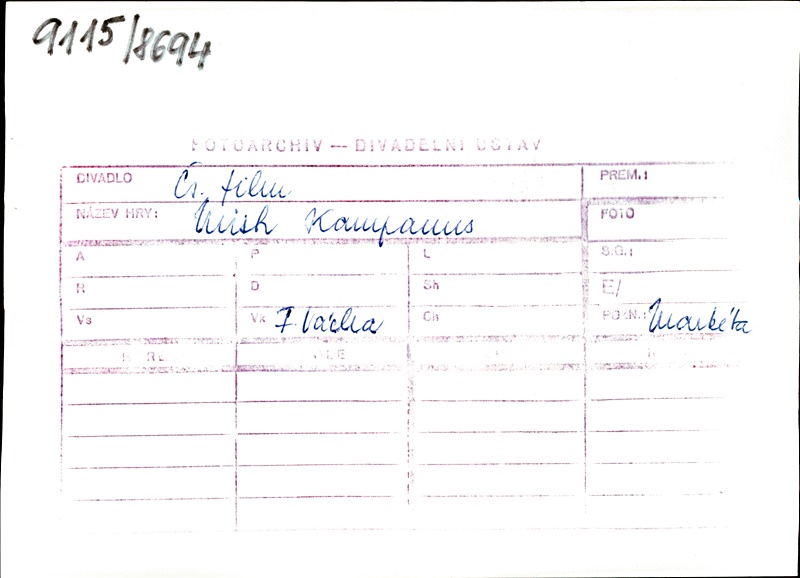 9115/8694
FOTOARCHIV — DIVADELNÍ ÚSTAV
DIVADLO Čs. film
PREM.:
NÁZEV HRY: Mistr Kampanus
FOTO
A P L S.G.:
R D Sh E/
Vs Vk F. Vácha Ch POZN.: Markéta